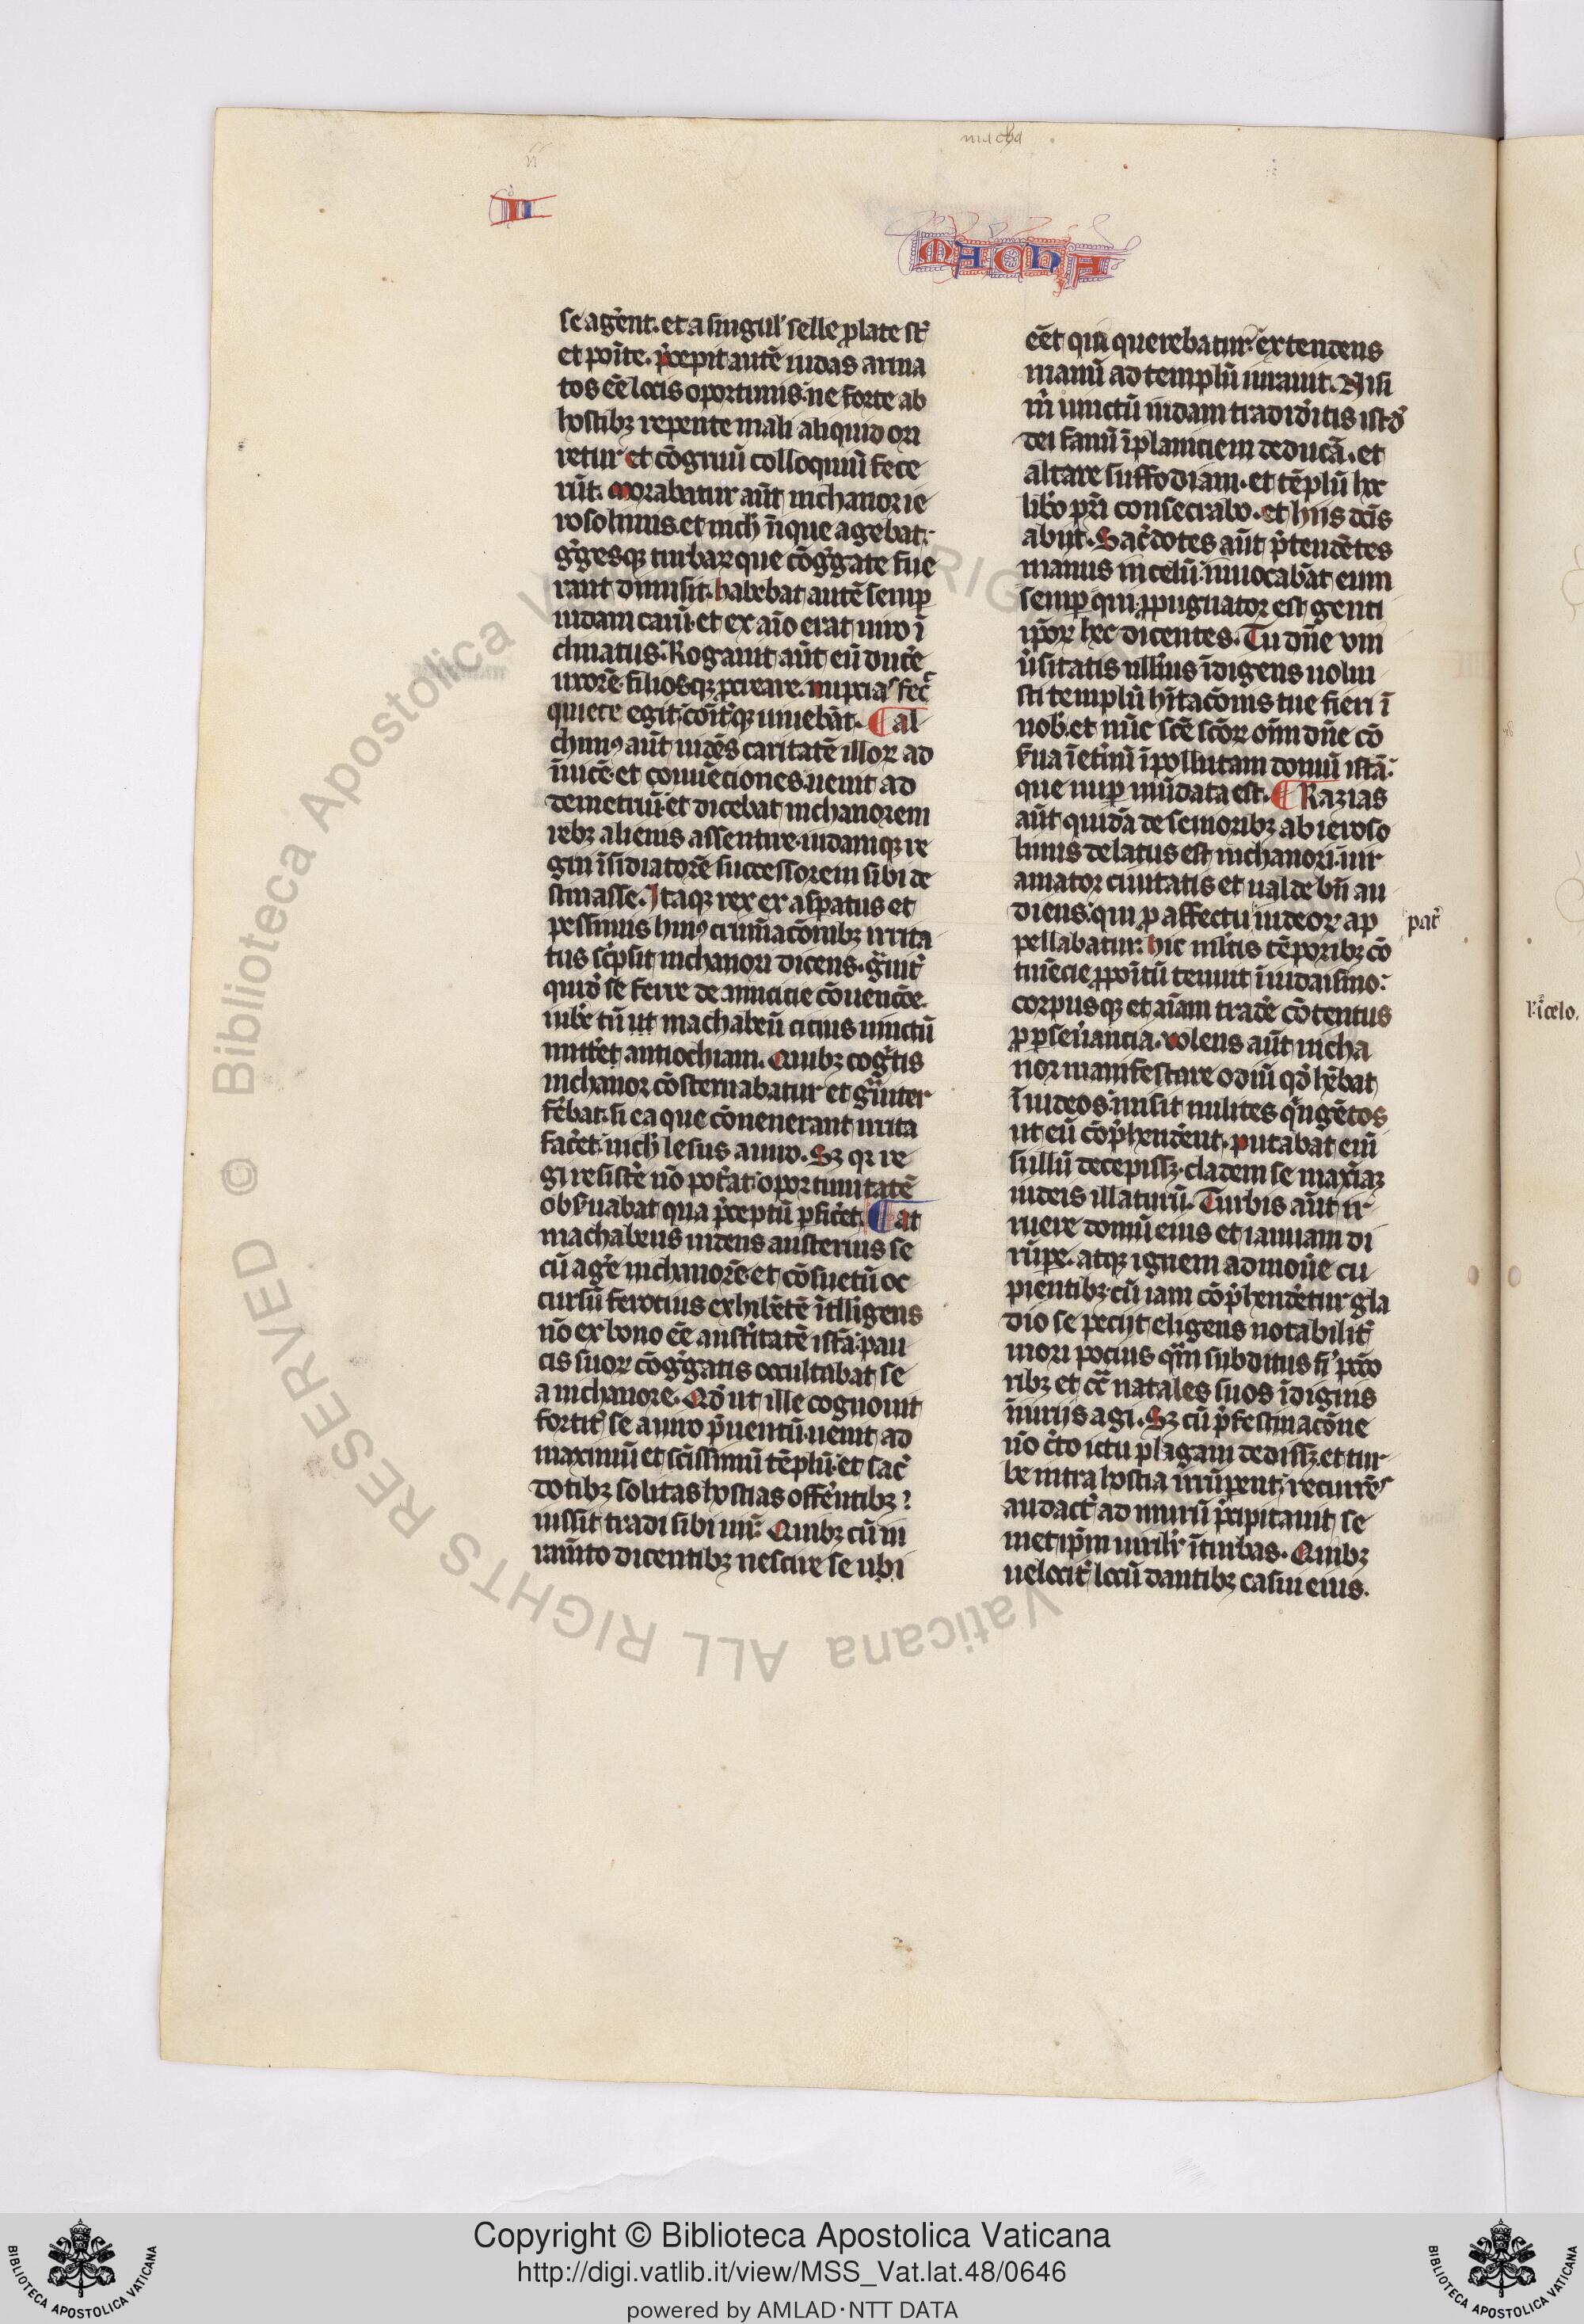 macha
II
MACHA
se agerēt. et a singul' selle ꝓlate st̄
et poīte. p̄cepit autē iudas arma
tos eē̄ locis oportunis. ne forte ab
hostibꝫ repente mali aliquid ori
retur et cōgruū colloquiū fece
rūt. Morabatur aūt nichanor ie
rosolimis. et nich̄ īique agebat.
gͤgesqꝫ turbarꝫ que cōgͤgate fue
rant dimisit. habebat autē semꝑ
iudam carū. et ex aīo erat uiro ī
clinatus. Rogauit aūt eū ducē
uxorē. filiosqꝫ ꝓcreare. nupcias fec̄
quiete egit. cōit̄qꝫ uiuebāt. ¶ Al
chimꝰ aūt uidēs caritatē illorꝫ ad
īuicē. et conuēciones. uenit ad
demetriū. et dicebat nichanorem
rebꝫ alienis assentire. iudamqꝫ re
gni īsidiatorē successorem sibi de
stinasse. Itaqꝫ rex exasꝑatus et
pessimis huiꝰ crimīacōnibꝫ irrita
tus sc̄psit nichanori dicens. gͣuit̄
quidē se ferre de amicicie cōuencōe.
iubē tn̄ ut machabeū citius uinctū
mitt̄et antiochiam. Quibꝫ cogͥtis
nichanor cōsternabatur et gͣuiter
fēbat. si ea que cōuenerant irrita
fac̄et. nich̄ lesus a uiro. Sꝫ qꝛ re
gi resistē nō pot̄at. oportunitatē
obs̄uabat qua p̄ceptū ꝑfic̄et. ¶ At
machabeus uidens austerius se
cū agē nichanorē. et cōsuetū oc
cursū ferocius exhibētē ītlligens
nō ex bono eē̄ aust̄itatē istā. pau
cis suorꝫ cōgͤgatis occultabat se
a nichanore. Qd̄ ut ille cognouit
fortit̄ se a uiro p̄uentū. uenit ad
maximū et sc̄issimū tēplū. et sac̄
dotibꝫ solitas hostias offērentibꝫ
iussit tradi sibi uiꝝ. Quibꝫ cū iu
ramīto dicentibꝫ nescire se ubi
eēt qui querebatur. extendens
manū ad templū iurauit. Nisi
m̄ uinctū iudam tradid̄itis istd̄
dei fanū ī planiciem deducā. et
altare suffodiam. et tēplū hc
lib̄o pr̄i consecrabo. et hiis dc̄is
abiit. Sac̄dotes aūt p̄tendētes
manus in celū. inuocabāt eum
semꝑ qui ꝓpugnator est genti
ip̄orꝫ hec dicentes. Tu dn̄e vni
ūsitatis nllius īdigens uolui
sti templū hītacōnis tue fieri ī
nob̄. et nūc scē scōrꝫ oīm dn̄e cō
s̄ua ī et̄nū īpollutam domū istā.
que nuꝑ mūdata est. ¶ Razias
aūt quidā de senioribꝫ ab ieroso
limis delatus est nichanori. uir
amator ciuitatis et ualde bn̄ au
diens. qui ꝓ affectu iudeorꝫ ap
pat̄
pellabatur. hic mltis tēporibꝫ cō
tinēcie ꝓpōitū tenuit ī iudaismo.
corpusqꝫ et aīam tradē cōtentus
ꝓ ꝑseūancia. volens aūt nicha
nor manifestare odiū qd̄ hēbat
ī iudeos. misit milites qͥngētos
ut eū cōp̄hendēnt. putabat eni
si illū decepissꝫ. cladem se maximā
iudeis illaturū. Turbis aūt ir
ruere domū eius et ianuam di
rūpe. atqꝫ ignem admouē cu
pientibꝫ. cū iam cōp̄henderetur gla
dio se peciit. eligens nobilit̄
mori pocius qͣm subditus fi' pcc̄o
ribꝫ et cͣ natales suos īdignis
īiuriis agi. Sꝫ cū p̄ festinacōne
nō c̄to ictu plagam dedissꝫ. et tur
be intra hostia irrūperent. recurrēs
audact̄ ad murū p̄cipitauit se
met ip̄m uirilr̄ ī turbas. Quibꝫ
uelocit̄ locū dantibꝫ casui eius.
l' ī celo.
© Biblioteca Apostolica Vaticana ALL RIGHTS RESERVED
Copyright © Biblioteca Apostolica Vaticana
http://digi.vatlib.it/view/MSS_Vat.lat.48/0646
powered by AMLAD·NTT DATA
BIBLIOTECA APOSTOLICA VATICANA
BIBLIOTECA APOSTOLICA VATICANA